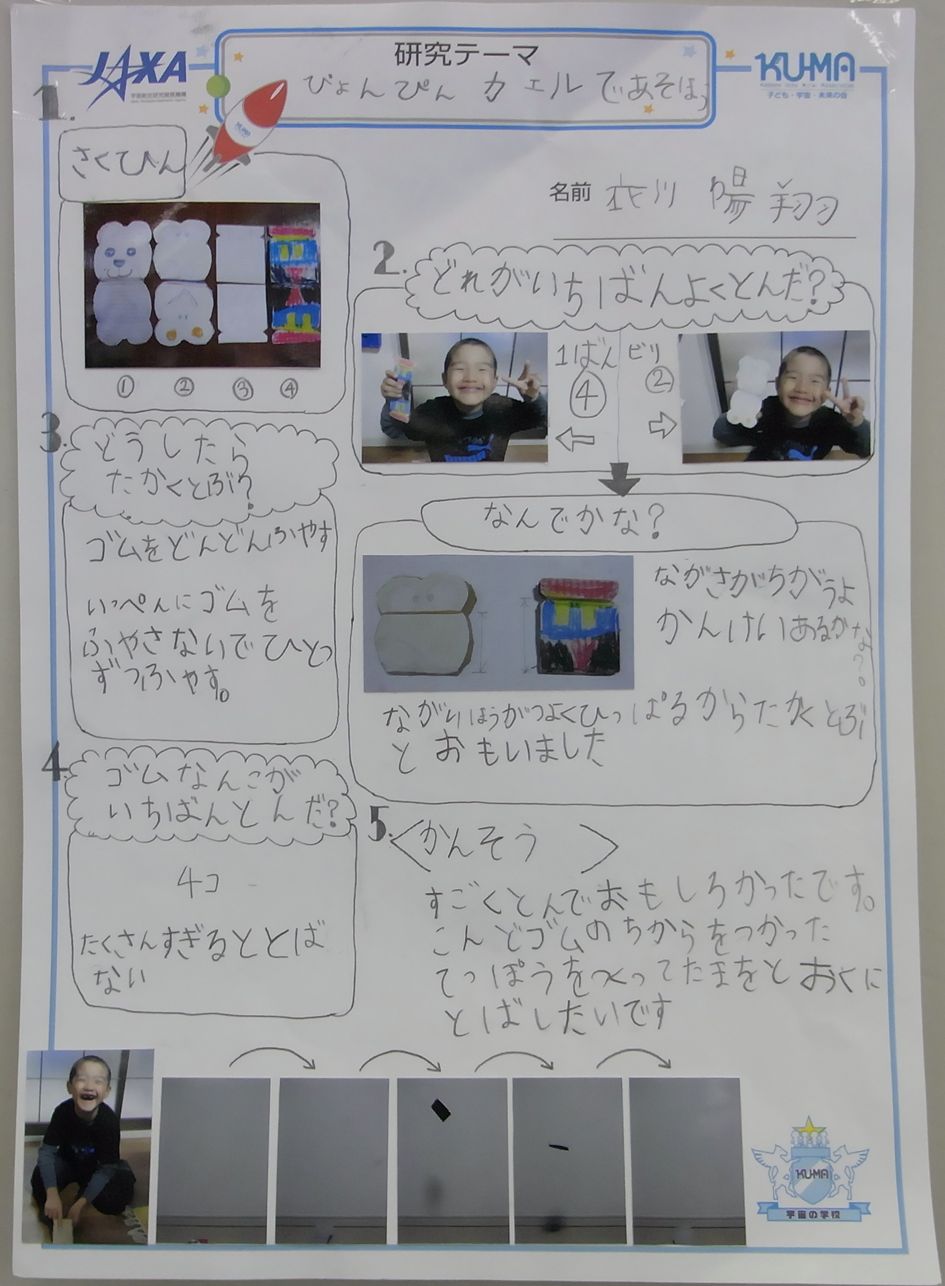 JAXA
研究テーマ
ぴょんぴん カエルであそぼう
KU-MA
子ども・宇宙・未来の会
1.
さくひん
名前 衣川 陽翔
① ② ③ ④
2.
どれがいちばんよくとんだ?
1ばん
④
ビリ
②
なんでかな?
ながさがちがうよ
かんけいあるかな?。
ながいほうがつよくひっぱるからたかくとぶ
とおもいました
3.
どうしたら
たかくとぶ?
ゴムをどんどんふやす
いっぺんにゴムを
ふやさないでひとつ
ずつふやす。
4.
ゴムなんこが
いちばんとんだ?
4コ
たくさんすぎるととば
ない
5.
<かんそう>
すごくとんでおもしろかったです。
こんどゴムのちからをつかった
てっぽうをつくってたまをとおくに
とばしたいです
KU-MA
宇宙の学校